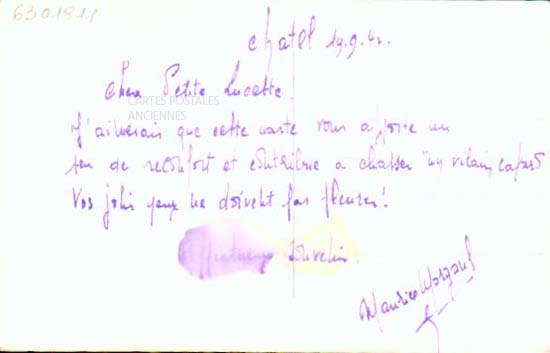 6301811
Chatel 19.9.42.
Chère Petite Lucette.
CARTES POSTALES
ANCIENNES
J'aimerais que cette carte vous apporte un
peu de réconfort et contribue a chasser "un vilain cafard"
Vos jolis yeux ne doivent pas pleurer!
Affectueux souvenir.
Maurice